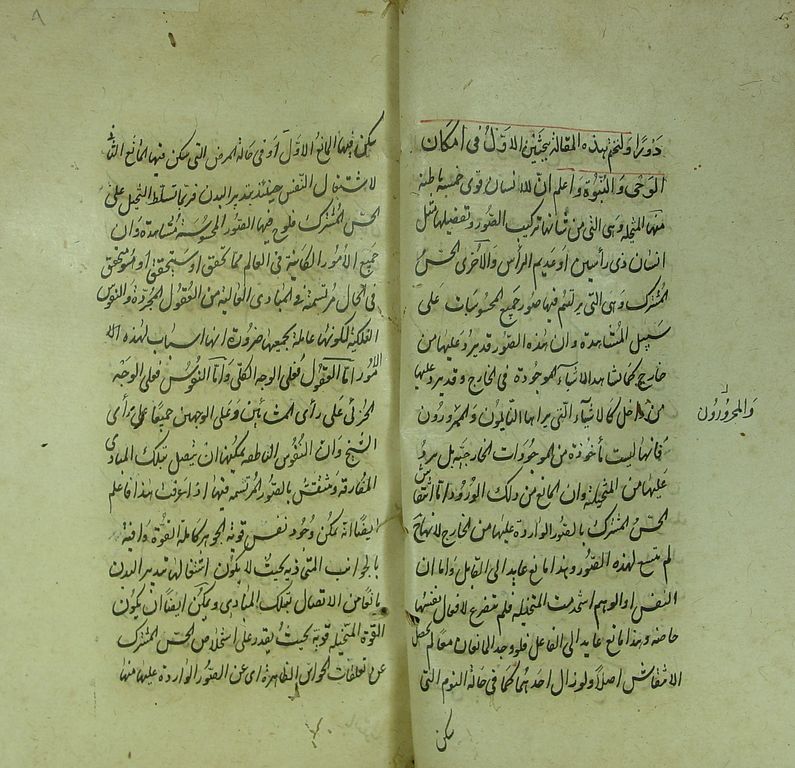 دورا ولنختم هذه المقالة ببحثين الاول في امكان
الوحي والنبوة واعلم ان للانسان قوى خمسة باطنة
منها المتخيلة وهي التي من شأنها تركيب الصور وتفصيلها مثل
انسان ذي رأسين او عديم الرأس والاخرى الحس
المشترك وهي التي يرتسم فيها صور جميع المحسوسات على
سبيل المشاهدة وان هذه الصور قد يرد عليها من
خارج كما نشاهد الاشياء الموجودة في الخارج وقد يرد عليها
من داخل كالاشياء التي يراها النائمون والممرورون
والمحرورون
فانها ليست مأخوذة من الموجودات الخارجية بل يرد
عليها من المتخيلة وان المانع من ذلك الورود اما انتقاش
الحس المشترك بالصور الواردة عليها من الخارج لانها ح
لم يتسع لهذه الصور وهذا مانع عايد الى القابل واما ان
النفس او الوهم استخدمت المتخيلة فلم تتفرغ لافعال نفسها
خاصة وهذا مانع عايد الى الفاعل فلو وجد المانعان معا لم يحصل
الانتقاش اصلا ولو زال احدهما كما في حالة النوم التي
يمكن
يمكن فيها المانع الاول او في حالة المرض التي يمكن فيها المانع الثاني
لاشتغال النفس حينئذ بتدبير البدن فربما تسلط التخيل على
الحس المشترك فلوح فيها الصور المحسوسة مشاهدة وان
جميع الامور الكاينة في العالم مما تحقق او سيتحقق او هو متحقق
في الحال مرتسمة في المبادي العالية من العقول المجردة والنفوس
الفلكية لكونها عالمة بجميعها ضرورة انها اسباب لهذه الا
الامور اما العقول فعلى الوجه الكلي واما النفوس فعلى الوجه
الجزئي على رأى المشائين وعلى الوجهين جميعا على رأى
الشيخ وان النفوس الناطقة يمكنها ان يتصل بتلك المبادي
المفارقة وتنتقش بالصور المرتسمة فيها اذا عرفت هذا فاعلم
ايضا انه يمكن وجود نفس قوية الجوهر كاملة القوة وافية
بالجوانب المتجاذبة بحيث لا يكون اشتغالها بتدبير البدن
مانعا من الاتصال بتلك المبادي ويمكن ايضا ان يكون
القوة المتخيلة قوية بحيث يقدر على استخلاص الحس المشترك
عن تعلقات الحواس الظاهرة اي عن الصور الواردة عليها منها